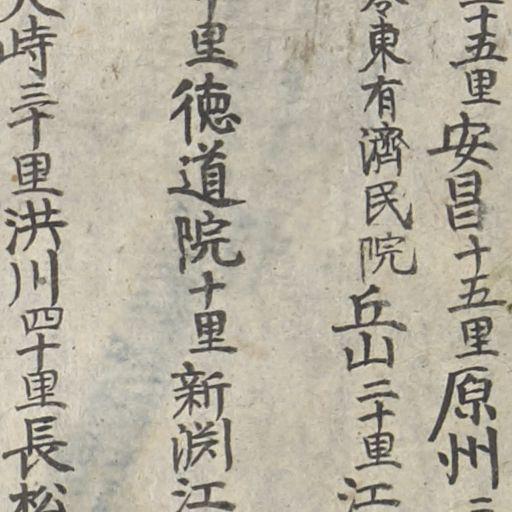 二十五里安昌十五里原州二
令東有濟民院丘山二十里江
十里德道院十里新渊江
大峙三十里洪川四十里長松